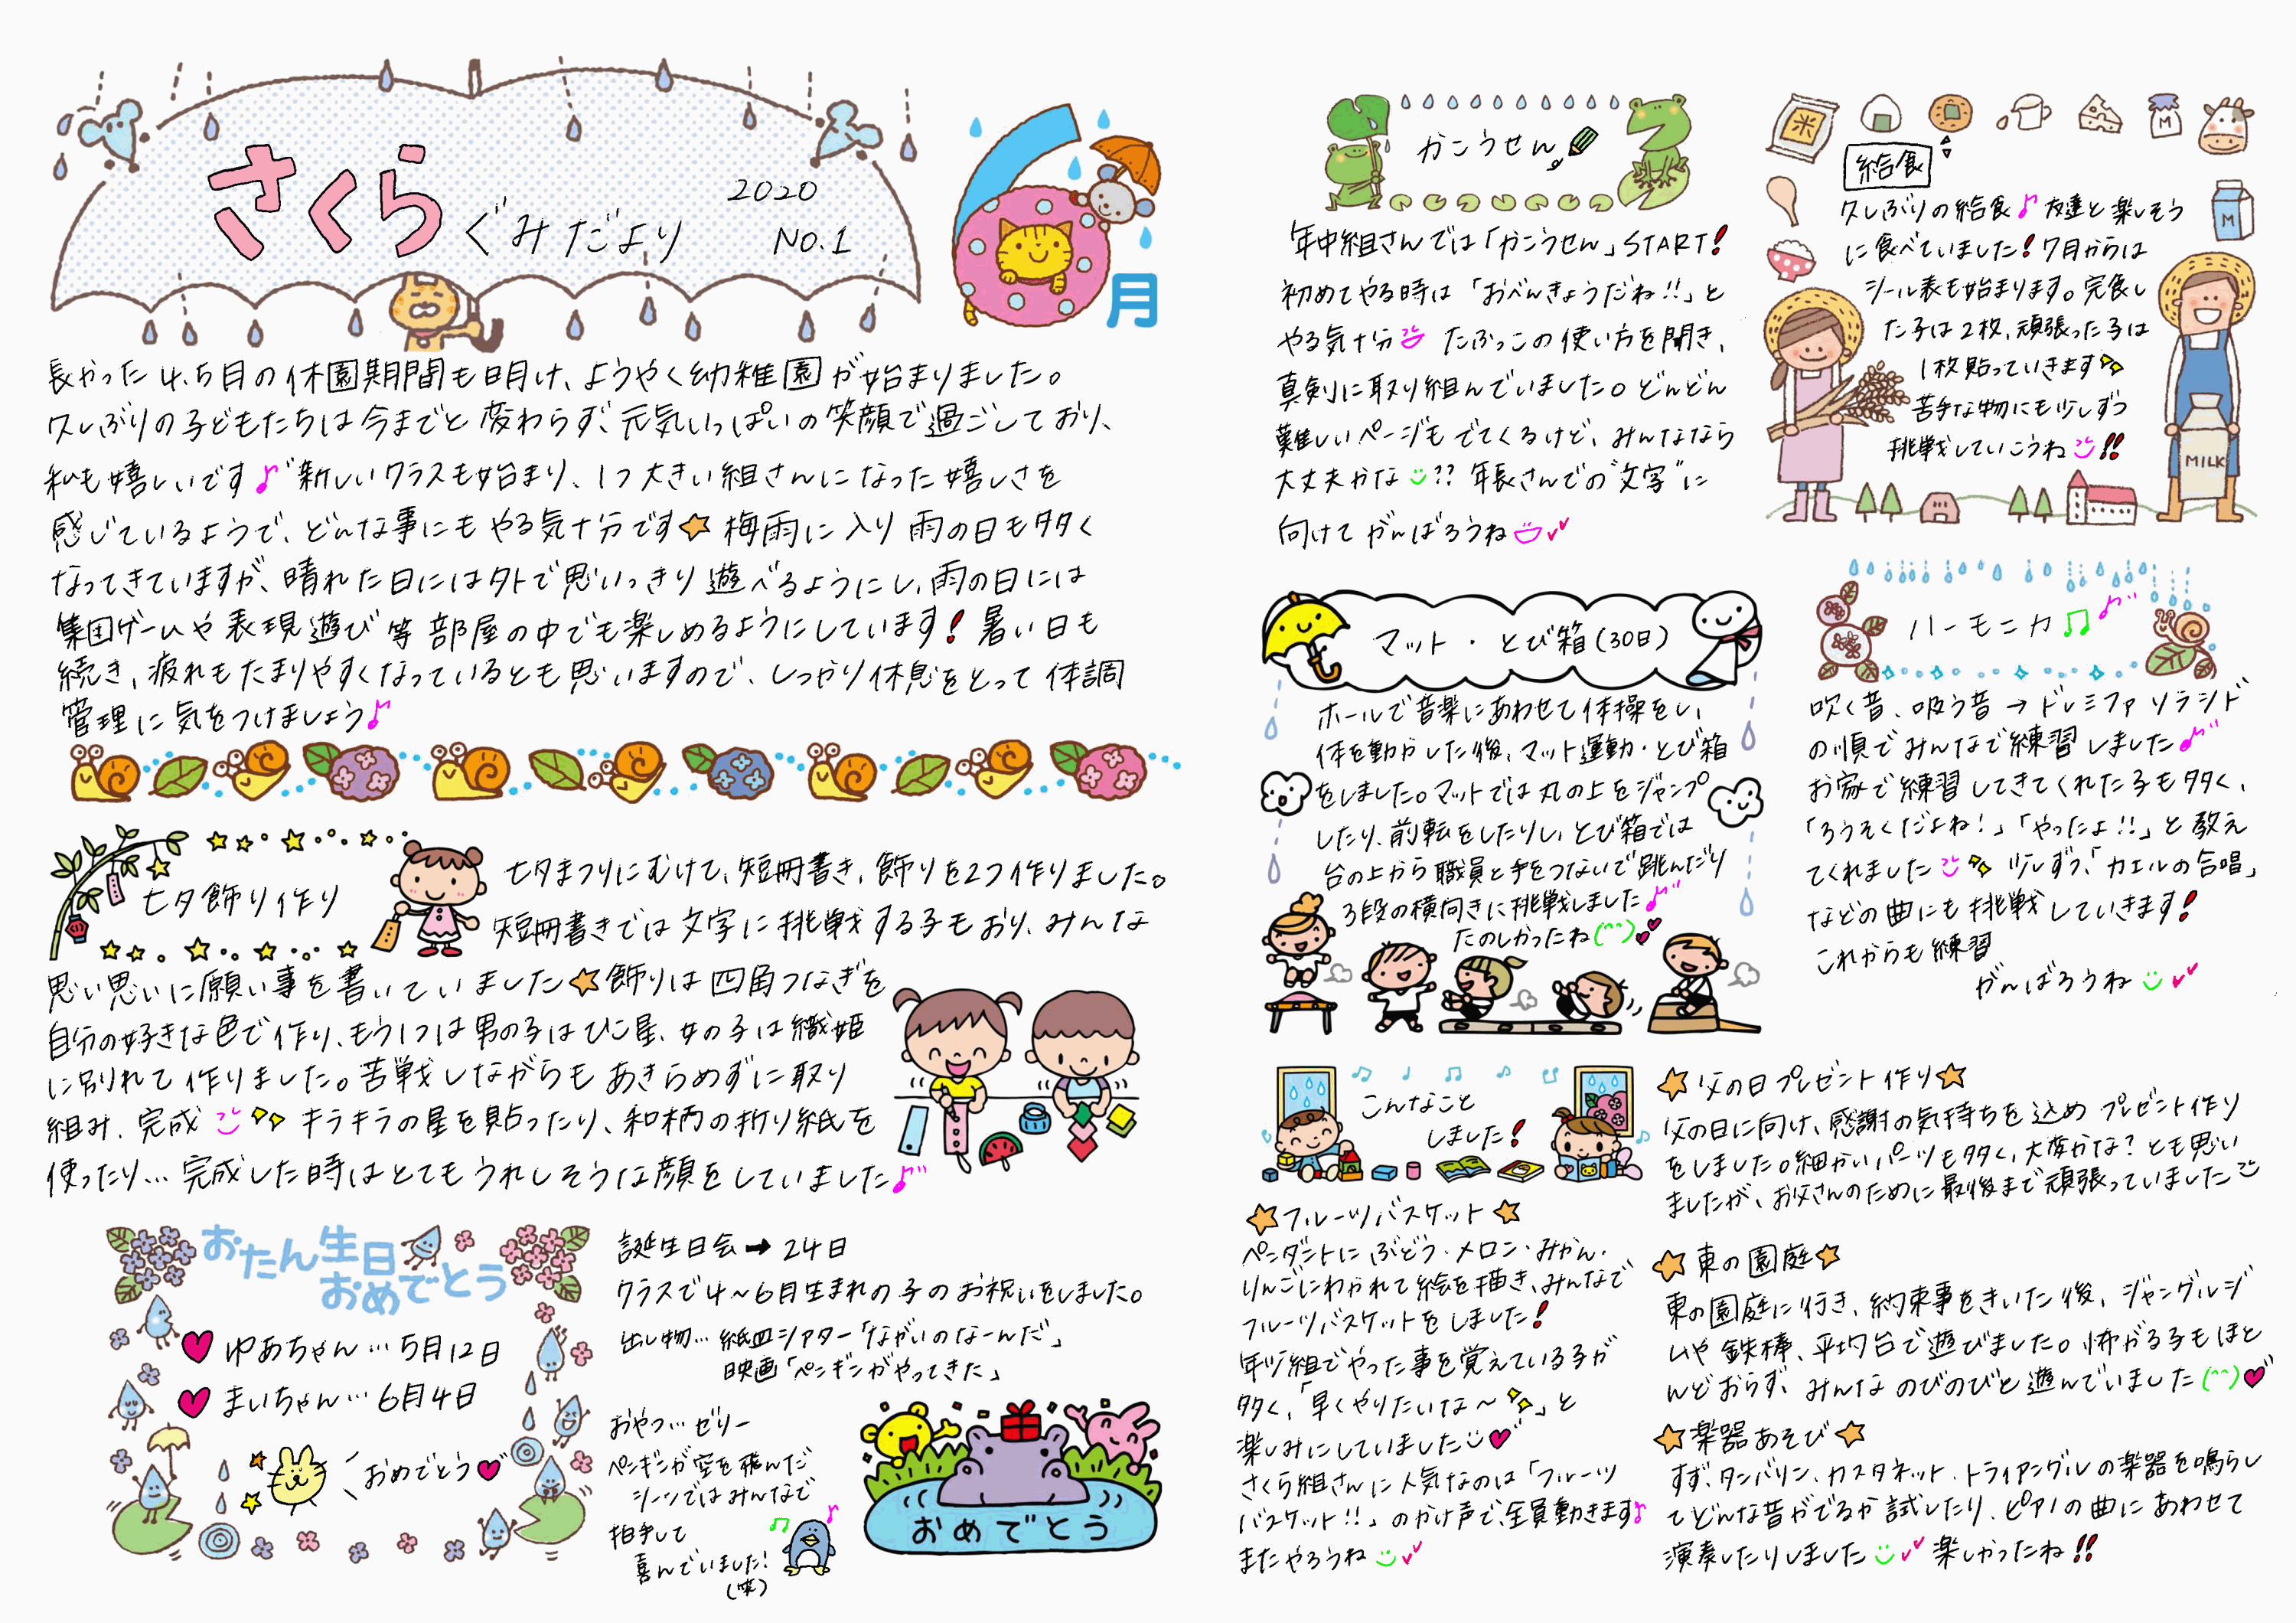 さくらぐみだより
2020
NO.1
6月
長かった4,5月の休園期間も明け、ようやく幼稚園が始まりました。
久しぶりの子どもたちは今までと変わらず、元気いっぱいの笑顔で過ごしており、
私も嬉しいです♪新しいクラスも始まり、1つ大きい組さんになった嬉しさを
感じているようで、どんな事にもやる気十分です☆梅雨に入り雨の日も多く
なってきていますが、晴れた日には外で思いっきり遊べるようにし、雨の日には
集団ゲームや表現遊び等部屋の中でも楽しめるようにしています!暑い日も
続き、疲れもたまりやすくなっているとも思いますので、しっかり休息をとって体調
管理に気をつけましょう♪
七夕飾り作り
七夕まつりにむけて、短冊書き、飾りを2つ作りました。
短冊書きでは文字に挑戦する子もおり、みんな
思い思いに願い事を書いていました☆飾りは四角つなぎを
自分の好きな色で作り、もう1つは男の子はひこ星、女の子は織姫
に別れて作りました。苦戦しながらもあきらめずに取り
組み、完成 キラキラの星を貼ったり、和柄の折り紙を
使ったり…完成した時はとてもうれしそうな顔をしていました♪
おたん生日
おめでとう
♥ゆあちゃん…5月12日
♥まいちゃん…6月4日
おめでとう♥
誕生日会→24日
クラスで4~6月生まれの子のお祝いをしました。
出し物…紙皿シアター「ながいのなーんだ」
映画「ペンギンがやってきた」
おやつ…ゼリー
ペンギンが空を飛んだ
シーンではみんなで
拍手して
喜んでいました!
(笑)
おめでとう
かこうせん
年中組さんでは「かこうせん」START!
初めてやる時は「おべんきょうだね!!」と
やる気十分 たぶっこの使い方を聞き、
真剣に取り組んでいました。どんどん
難しいページもでてくるけど、みんななら
大丈夫かな??年長さんでの"文字"に
向けてがんばろうね
米
M
M
給食
久しぶりの給食♪友達と楽しそう
に食べていました!7月からは
シール表も始まります。完食し
た子は2枚、頑張った子は
1枚貼っていきます
苦手な物にも少しずつ
挑戦していこうね!!
MILK
マット・とび箱(30日)
ホールで音楽にあわせて体操をし、
体を動かした後、マット運動・とび箱
をしました。マットでは丸の上をジャンプ
したり、前転をしたりし、とび箱では
台の上から職員と手をつないで跳んだり
3段の横向きに挑戦しました♪
たのしかったね(^^)
ハーモニカ♫♪
吹く音、吸う音→ドレミファソラシド
の順でみんなで練習しました♪
お家で練習してきてくれた子も多く、
「ろうそくだよね!」「やったよ!!」と教え
てくれました 少しずつ、「カエルの合唱」
などの曲にも挑戦していきます!
これからも練習
がんばろうね
こんなこと
しました!
☆フルーツバスケット☆
ペンダントにぶどう・メロン・みかん・
りんごにわかれて絵を描き、みんなで
フルーツバスケットをしました!
年少組でやった事を覚えている子が
多く、「早くやりたいな~」と
楽しみにしていました♥
さくら組さんに人気なのは「フルーツ
バスケット!!」のかけ声で、全員動きます♪
またやろうね
☆父の日プレゼント作り☆
父の日に向け、感謝の気持ちを込めプレゼント作り
をしました。細かいパーツも多く、大変かな?とも思い
ましたが、お父さんのために最後まで頑張っていました
☆東の園庭☆
東の園庭に行き、約束事をきいた後、ジャングルジ
ムや鉄棒、平均台で遊びました。怖がる子もほと
んどおらず、みんなのびのびと遊んでいました(^^)♥
☆楽器あそび☆
すず、タンバリン、カスタネット、トライアングルの楽器を鳴らし
てどんな音がでるか試したり、ピアノの曲にあわせて
演奏したりしました 楽しかったね!!